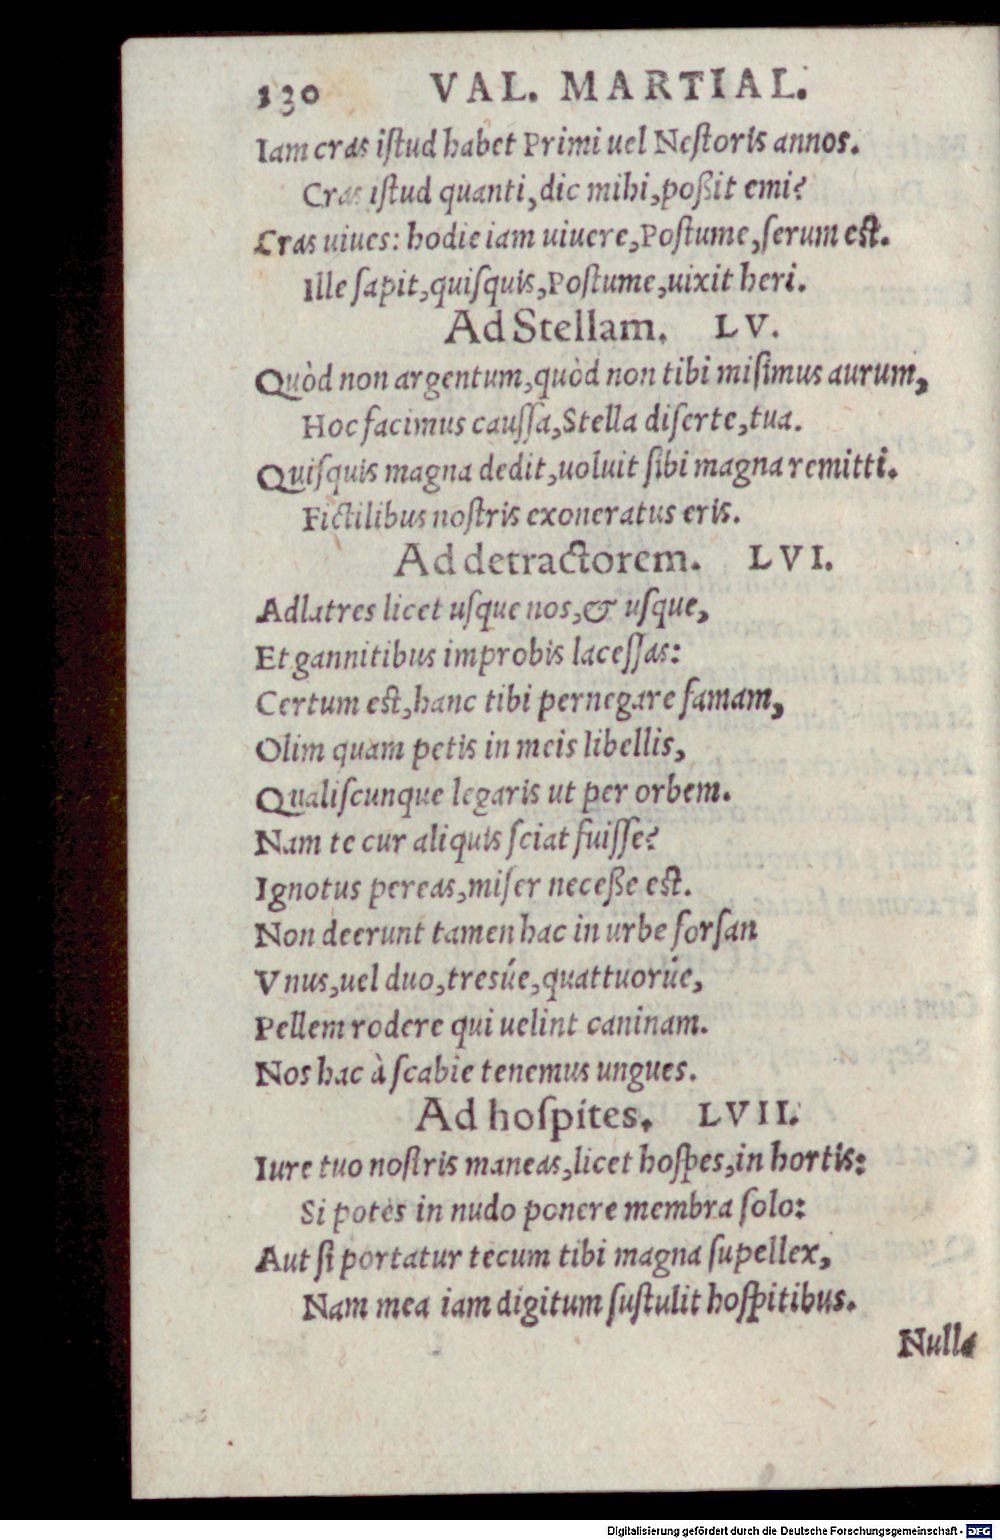 130 VAL. MARTIAL.
Iam cras iſtud habet Primi uel Neſtoris annos.
Cras iſtud quanti, dic mihi, poßit emi?
Cras uiues: hodie iam uiuere, Poſtume, ſerum eſt.
Ille ſapit, quiſquis, Poſtume, uixit heri.
Ad Stellam. LV.
Quòd non argentum, quòd non tibi miſimus aurum,
Hoc facimus cauſſa, Stella diſerte, tua.
Quiſquis magna dedit, uoluit ſibi magna remitti.
Fictilibus noſtris exoneratus eris.
Ad detractorem. LVI.
Adlatres licet uſque nos, & uſque,
Et gannitibus improbis laceſſas:
Certum eſt, hanc tibi pernegare famam,
Olim quam petis in meis libellis,
Qualiſcunque legaris ut per orbem.
Nam te cur aliquis ſciat fuiſſe?
Ignotus pereas, miſer neceße eſt.
Non deerunt tamen hac in urbe forſan
Vnus, uel duo, tresúe, quattuorúe,
Pellem rodere qui uelint caninam.
Nos hac à ſcabie tenemus ungues.
Ad hoſpites. LVII.
Iure tuo noſtris maneas, licet hoſpes, in hortis:
Si potes in nudo ponere membra ſolo:
Aut ſi portatur tecum tibi magna ſupellex,
Nam mea iam digitum ſuſtulit hoſpitibus.
Nulla
Digitalisierung gefördert durch die Deutsche Forschungsgemeinschaft - DFG